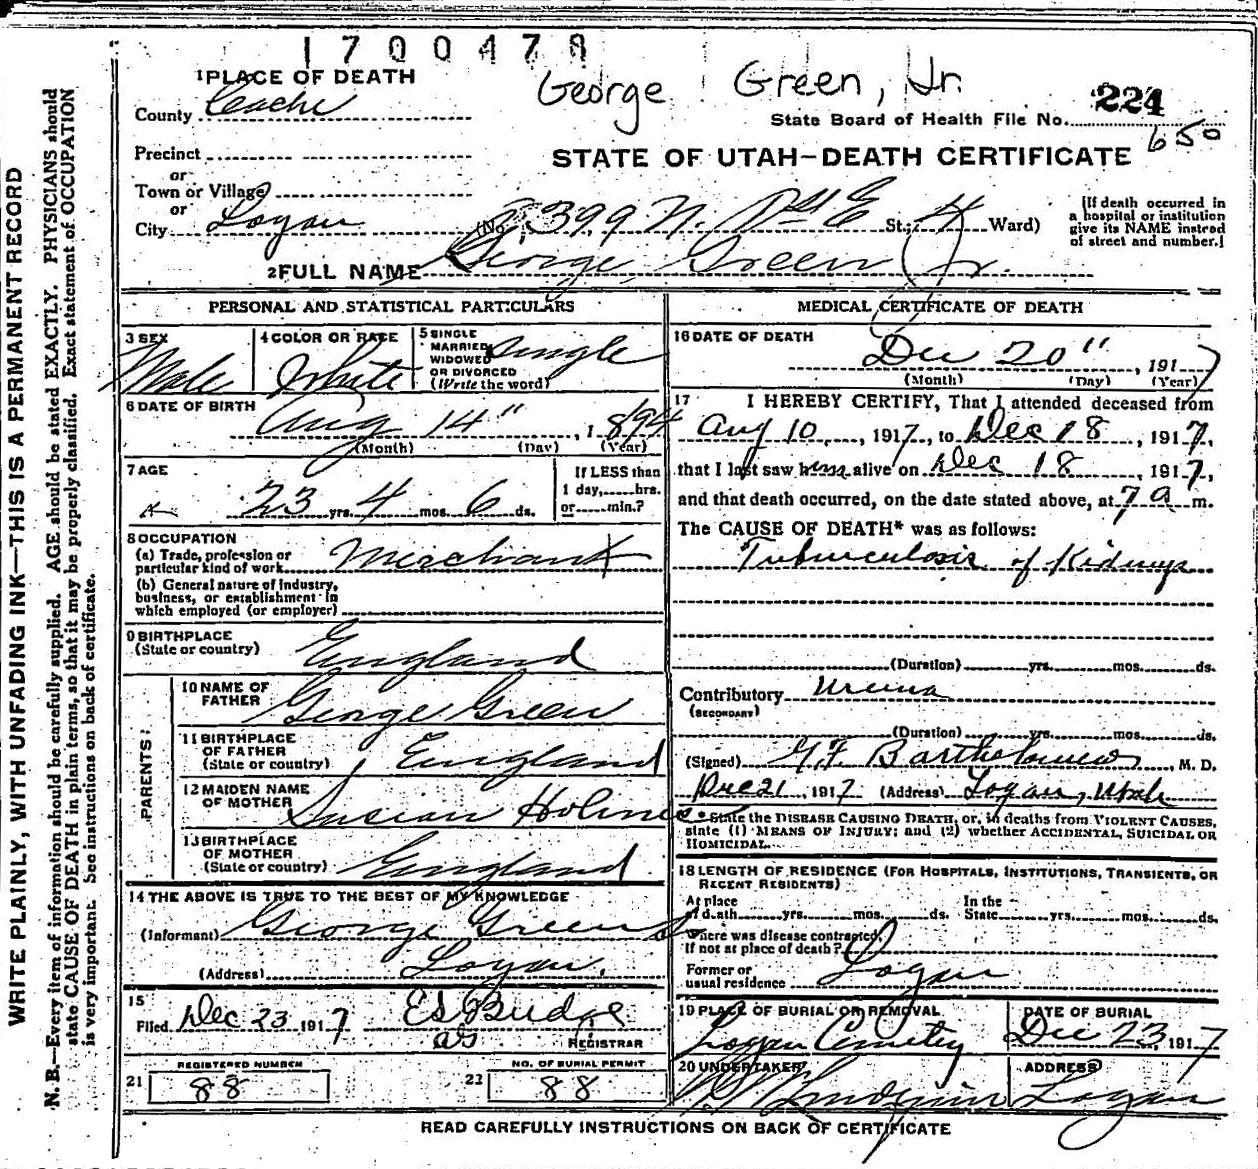 1700478
George Green, Jr.
1 PLACE OF DEATH
County Cache
224
State Board of Health File No.
650
Precinct
or
Town or Village
or
City Logan
STATE OF UTAH—DEATH CERTIFICATE
(No. 399 N. 1st E St.; 4 Ward)
[If death occurred in
a hospital or institution
give its NAME instead
of street and number.]
2 FULL NAME George Green Jr.
PERSONAL AND STATISTICAL PARTICULARS
3 SEX
Male
4 COLOR OR RACE
White
5 SINGLE
MARRIED
WIDOWED
OR DIVORCED
(Write the word)
Single
6 DATE OF BIRTH
Aug 14", 1894
(Month) (Day) (Year)
7 AGE
23 yrs. 4 mos. 6 ds.
If LESS than
1 day,......hrs.
or......min.?
8 OCCUPATION
(a) Trade, profession or
particular kind of work Merchant
(b) General nature of Industry,
business, or establishment in
which employed (or employer)
9 BIRTHPLACE
(State or country) England
PARENTS
10 NAME OF
FATHER George Green
11 BIRTHPLACE
OF FATHER
(State or country) England
12 MAIDEN NAME
OF MOTHER Susan Holmes
13 BIRTHPLACE
OF MOTHER
(State or country) England
14 THE ABOVE IS TRUE TO THE BEST OF MY KNOWLEDGE
(Informant) George Green Sr
(Address) Logan.
15
Filed Dec 23 1917 Ed Budge
REGISTRAR
21 REGISTERED NUMBER
88
22 NO. OF BURIAL PERMIT
88
MEDICAL CERTIFICATE OF DEATH
16 DATE OF DEATH
Dec 20", 1917
(Month) (Day) (Year)
17 I HEREBY CERTIFY, That I attended deceased from
Aug 10, 1917, to Dec 18, 1917,
that I last saw him alive on Dec 18, 1917,
and that death occurred, on the date stated above, at 7 a m.
The CAUSE OF DEATH* was as follows:
Tuberculosis of Kidneys
(Duration) yrs. mos. ds.
Contributory Uremia
(SECONDARY)
(Duration) yrs. mos. ds.
(Signed) G.F. Bartholomew, M. D.
Dec 21, 1917 (Address) Logan, Utah
*State the DISEASE CAUSING DEATH, or, in deaths from VIOLENT CAUSES,
state (1) MEANS OF INJURY; and (2) whether ACCIDENTAL, SUICIDAL OR
HOMICIDAL.
18 LENGTH OF RESIDENCE (FOR HOSPITALS, INSTITUTIONS, TRANSIENTS, OR
RECENT RESIDENTS)
At place
of death yrs. mos. ds.
In the
State yrs. mos. ds.
Where was disease contracted,
If not at place of death?
Former or
usual residence Logan
19 PLACE OF BURIAL OR REMOVAL
Logan Cemetery
DATE OF BURIAL
Dec 23, 1917
20 UNDERTAKER
ADDRESS
Logan
READ CAREFULLY INSTRUCTIONS ON BACK OF CERTIFICATE
WRITE PLAINLY, WITH UNFADING INK—THIS IS A PERMANENT RECORD
N. B.—Every item of information should be carefully supplied. AGE should be stated EXACTLY. PHYSICIANS should
state CAUSE OF DEATH in plain terms, so that it may be properly classified. Exact statement of OCCUPATION
is very important. See instructions on back of certificate.